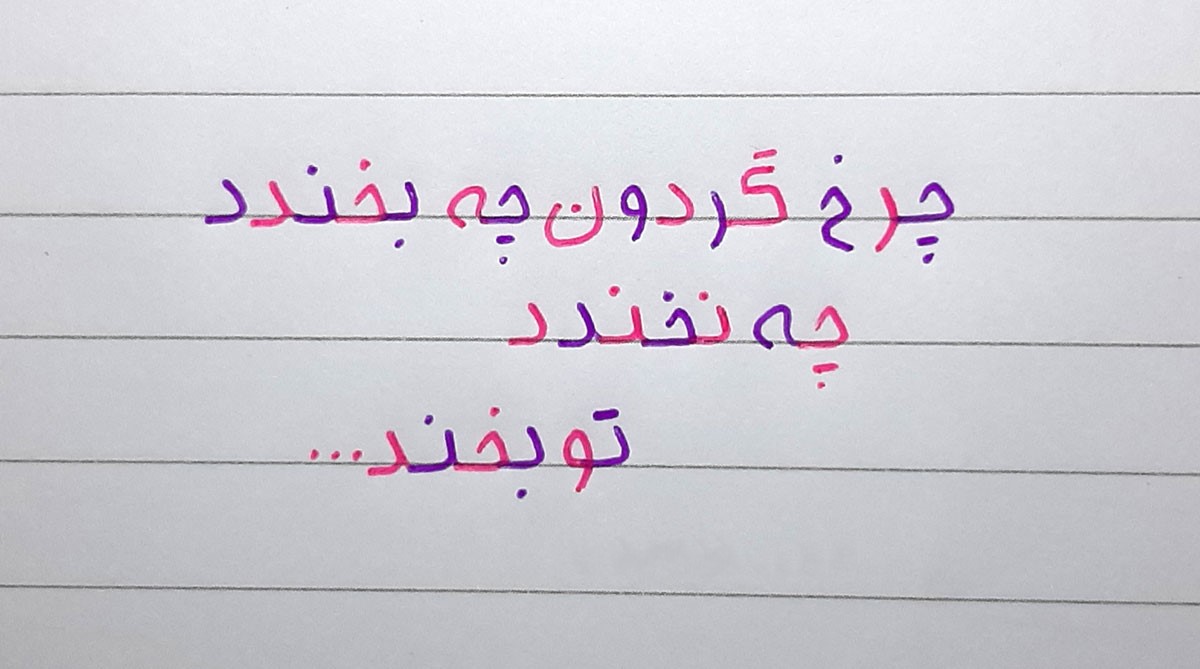 چرخ گردون چه بخندد
چه نخندد
تو بخند...